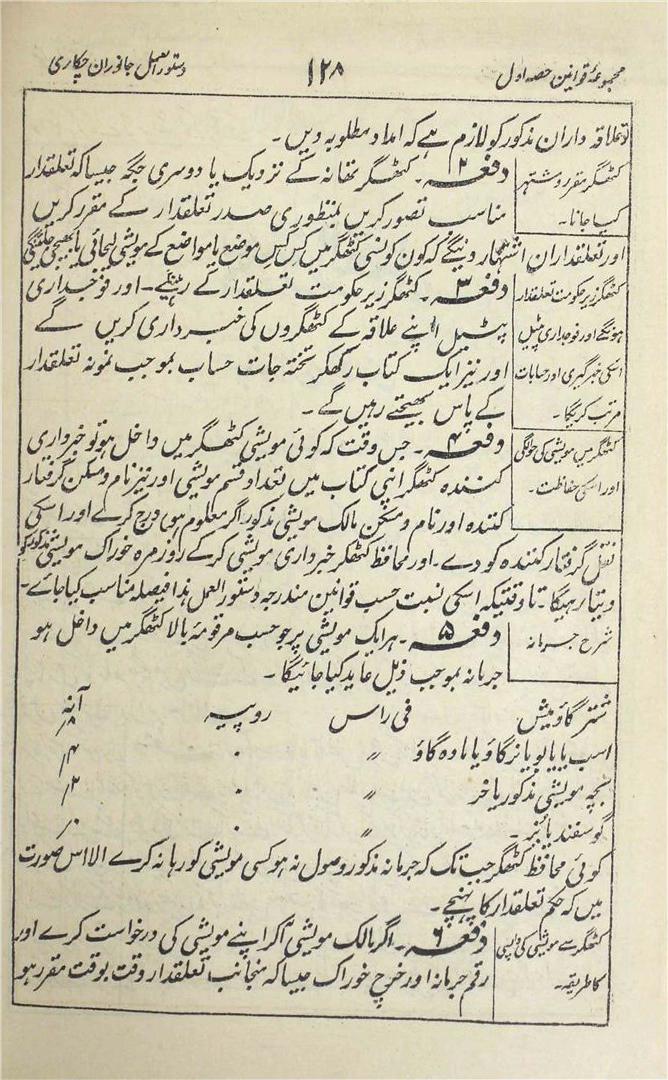 مجموعۂ قوانین حصہ اول
۱۲۸
دستور العمل جانوران چکاری
تو علاقہ داران مذکور کو لازم ہے کہ امداد مطلوبہ دیں۔
کٹھگر مقرر و مشتہر
کیا جانا۔
دفعہ ۲۔ کٹھگر تھانہ کے نزدیک یا دوسری جگہ جیسا کہ تعلقدار
مناسب تصور کریں بمنظوری صدر تعلقدار کے مقرر کریں
اور تعلقداران اشتہار دینگے کہ کون کونسی کٹھگر میں کس کس موضع یا مواضع کے مویشی لیجائی یا بھیجی جائینگی
کٹھگر زیر حکومت تعلقدار
ہونگے اور فوجداری پٹیل
اسکی خبرگیری اور حسابات
مرتب کریگا۔
دفعہ ۳۔ کٹھگر زیر حکومت تعلقدار کے رہینگے۔ اور فوجداری
پٹیل اپنے علاقہ کے کٹھگروں کی خبرداری کریں گے
اور نیز ایک کتاب رکھکر تختہ جات حساب بموجب نمونہ تعلقدار
کے پاس بھیجتے رہیں گے۔
کٹھگر میں مویشی کی حوالگی
اور اسکی حفاظت۔
دفعہ ۴۔ جس وقت کہ کوئی مویشی کٹھگر میں داخل ہو تو خبرداری
کنندہ کٹھگر اپنی کتاب میں تعداد و قسم مویشی اور نیز نام و مسکن گرفتار
کنندہ اور نام و مسکن مالک مویشی مذکور اگر معلوم ہوں درج کرے اور اسکی
نقل گرفتار کنندہ کو دے۔ اور محافظ کٹھگر خبرداری مویشی کر کے روزمرہ خوراک مویشی مذکور کو
دیتا رہیگا۔ تا وقتیکہ اسکی نسبت حسب قوانین مندرجہ دستور العمل ہذا فیصلہ مناسب کیا جائے۔
شرح جرمانہ
دفعہ ۵۔ ہر ایک مویشی پر جو حسب مرقومۂ بالا کٹھگر میں داخل ہو
جرمانہ بموجب ذیل عاید کیا جائیگا۔
شتر گاؤمیش فی راس روپیہ آنہ
۸/
اسپ یا یابو یا نرگاؤ یا مادہ گاؤ 〃 ۰ ۴/
بچہ مویشی مذکور یا خر 〃 ۰ ۲/
گوسفند یا بز۔ 〃 ۰ ۱/
کوئی محافظ کٹھگر جب تک کہ جرمانہ مذکور وصول نہ ہو کسی مویشی کو رہا نہ کرے الا اس صورت
میں کہ حکم تعلقدار کا پہنچے۔
کٹھگر سے مویشی کی واپسی
کا طریقہ۔
دفعہ ۶۔ اگر مالک مویشی آکر اپنے مویشی کی درخواست کرے اور
رقم جرمانہ اور خرچ خوراک جیسا کہ منجانب تعلقدار وقت بوقت مقرر ہو